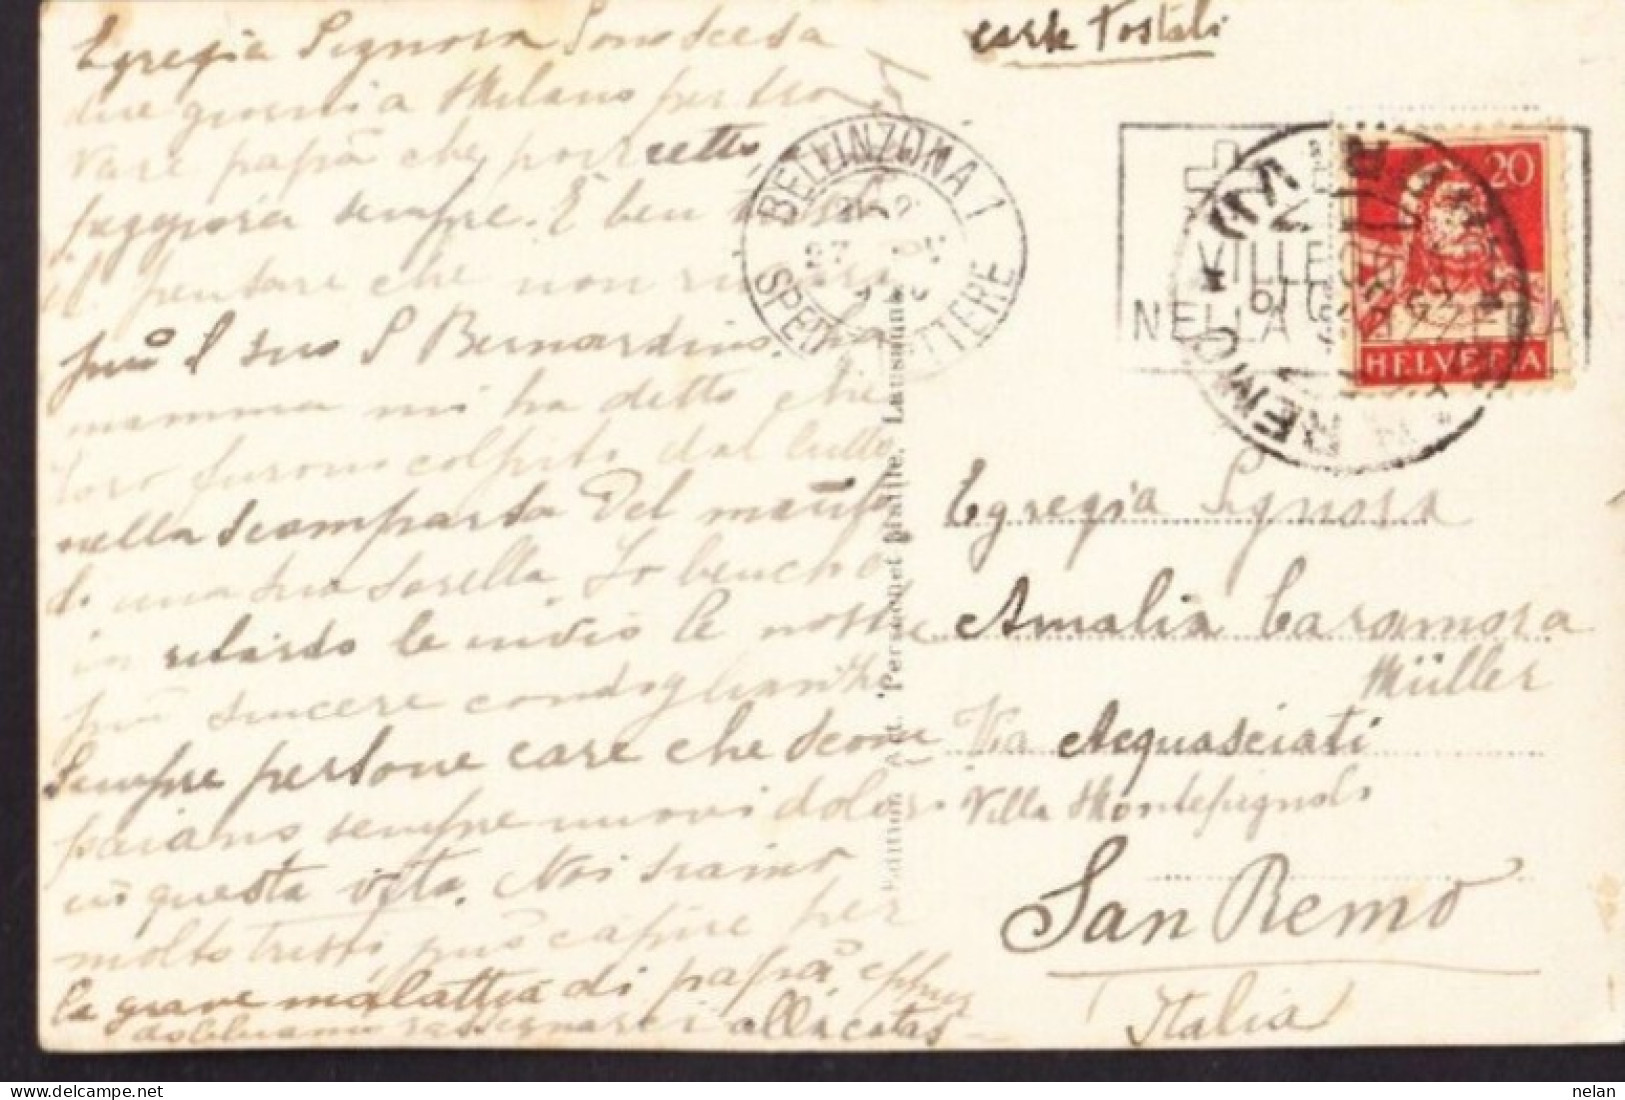 Egregia Signora Sono scesa
due giorni a Milano per tro
vare papà che poveretto,
peggiora sempre. È ben
il pensare che non rivedrà
più il suo S Bernardino. La
mamma mi ha detto che
loro furono colpiti dal lutto
nella scomparsa del marito
di una sua sorella. Io benchè
in ritardo le invio le nostre
più sincere condoglianze
Sempre persone care che scom
paiano sempre nuovi dolori
in questa vita. Noi siamo
molto tristi può capire per
la grave malattia di papà, eppure
dobbiamo rassegnarci alla catas-
carte Postali
BELLINZONA 1
SPED. LETTERE
VILLEGG
NELLA SVIZZERA
20
HELVETIA
Edition Art. Perrochet Matile, Lausanne
Egregia Signora
Amalia Caramora
Müller
Via Acquasciati
Villa Montepignolo
San Remo
Italia
nelan